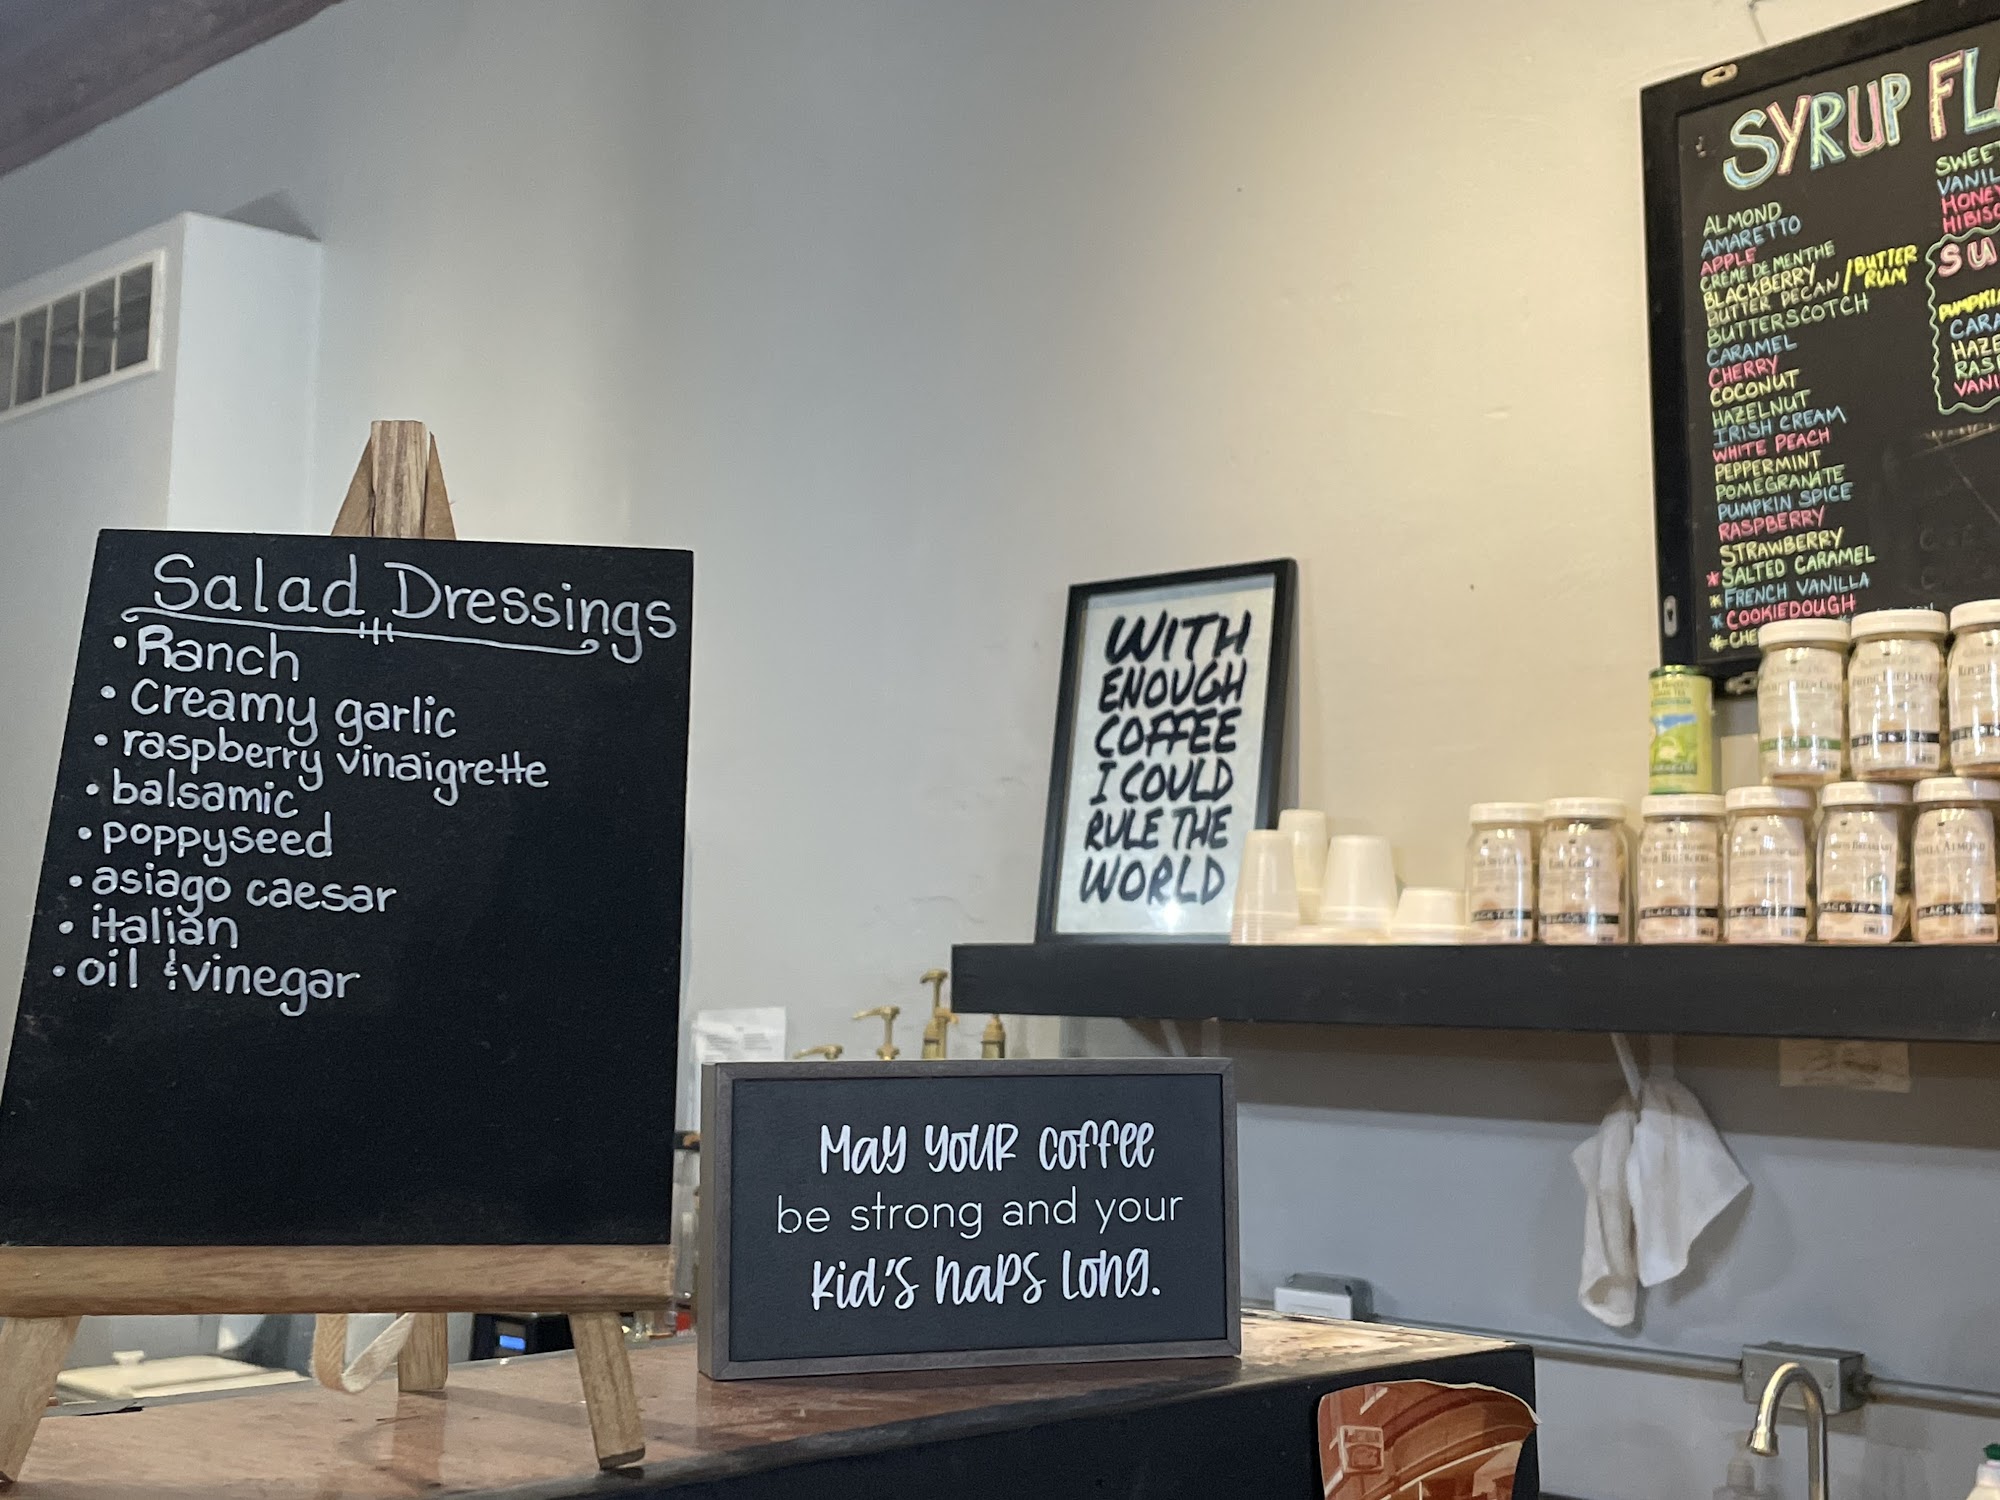 Salad Dressings
• Ranch
• Creamy garlic
• raspberry vinaigrette
• balsamic
• poppyseed
• asiago caesar
• italian
• oil & vinegar
MAY YOUR COFFEE
be strong and your
KID'S NAPS LONG.
WITH
ENOUGH
COFFEE
I COULD
RULE THE
WORLD
SYRUP FLA
ALMOND
AMARETTO
APPLE
CRÈME DE MENTHE
BLACKBERRY
BUTTER PECAN / BUTTER RUM
BUTTERSCOTCH
CARAMEL
CHERRY
COCONUT
HAZELNUT
IRISH CREAM
WHITE PEACH
PEPPERMINT
POMEGRANATE
PUMPKIN SPICE
RASPBERRY
STRAWBERRY
* SALTED CARAMEL
* FRENCH VANILLA
* COOKIEDOUGH
* CHE
SWEET
VANIL
HONEY
HIBISC
SU
PUMPKI
CARA
HAZE
RASP
VANI
EARL GREY
BLACK TEA
BLACK TEA
BLACK TEA
BLACK TEA
BLACK TEA
BLACK TEA